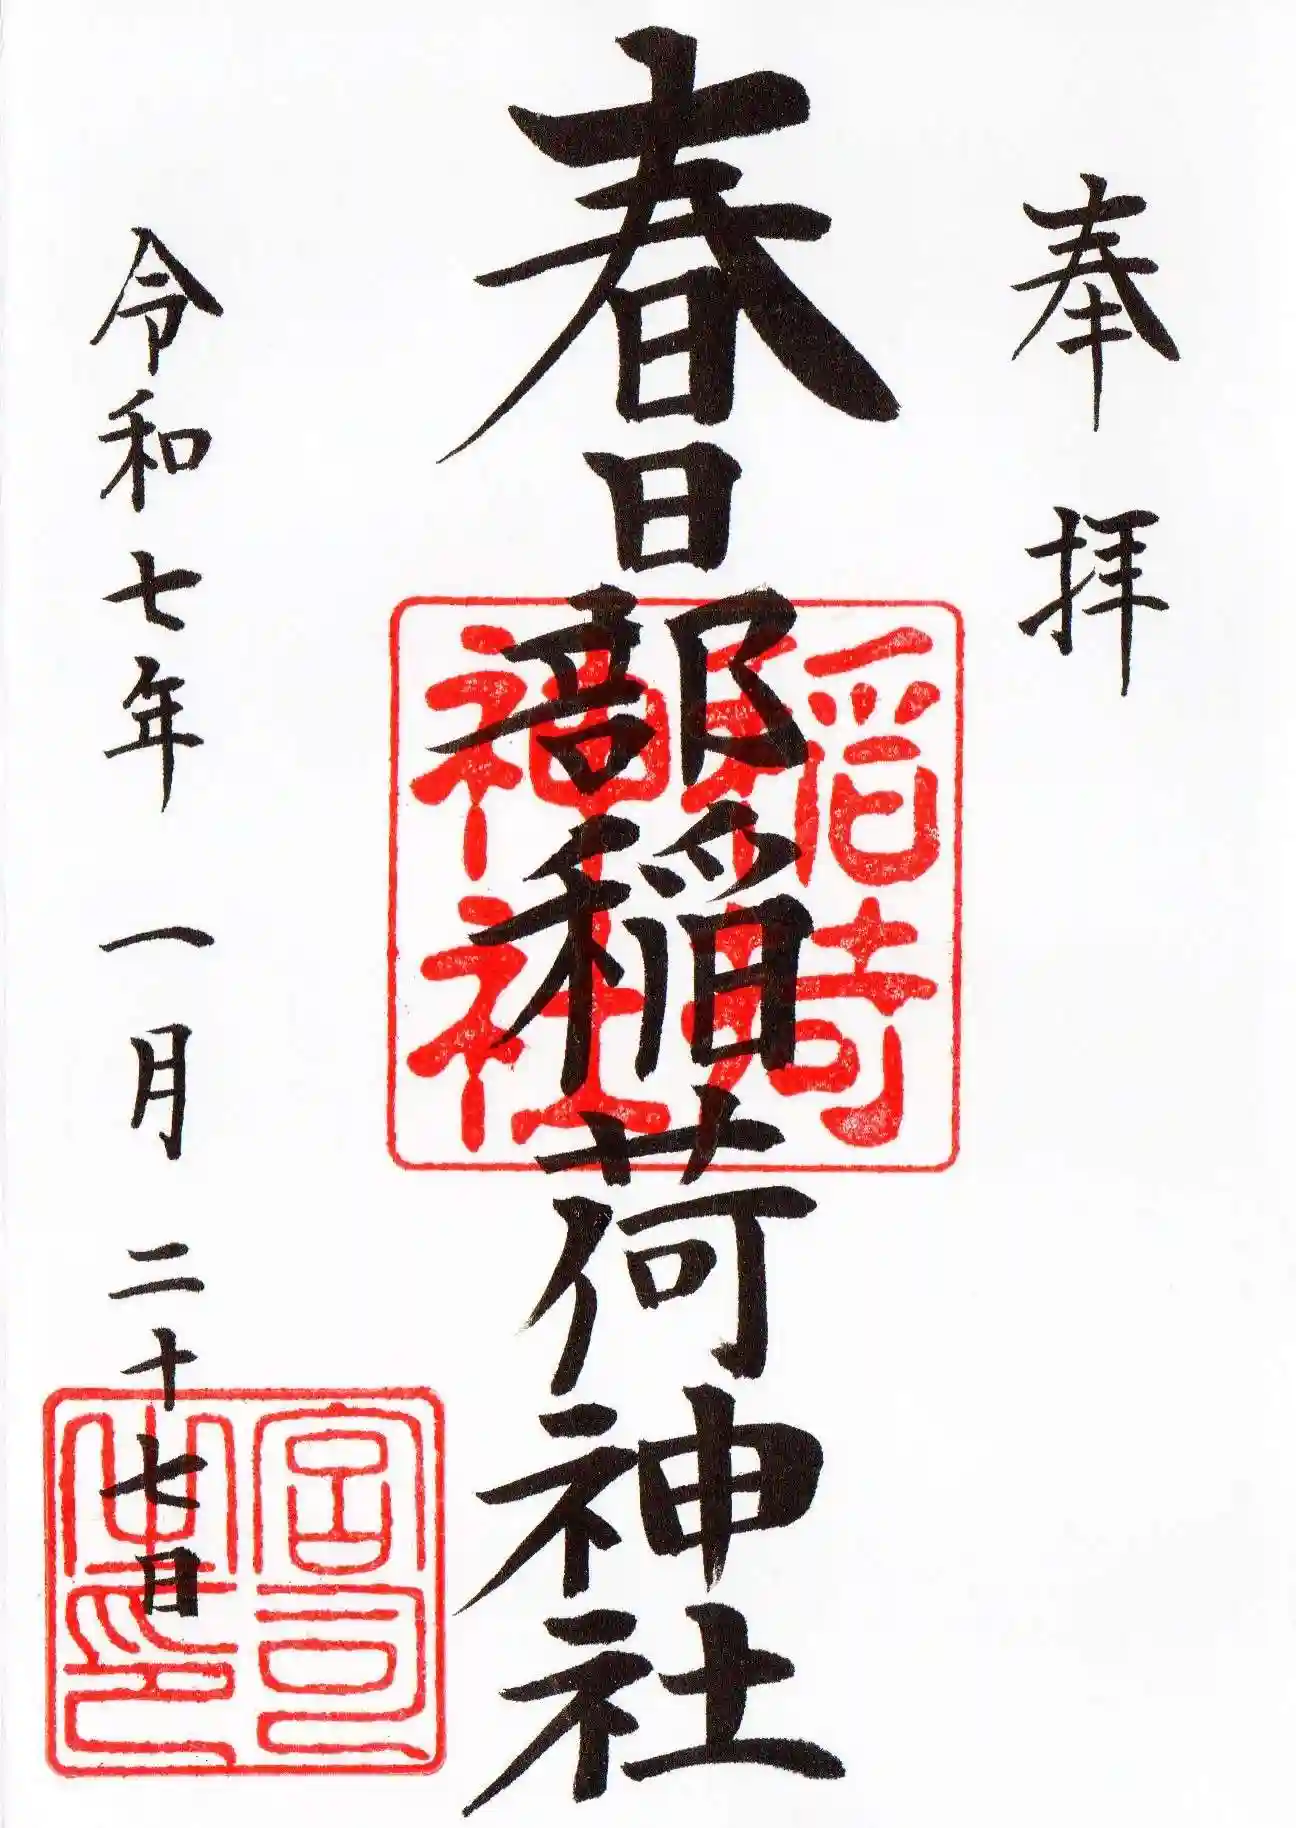 奉拝
春日部稲荷神社
稲荷
神社
令和七年 一月 二十七日
宮司
之印